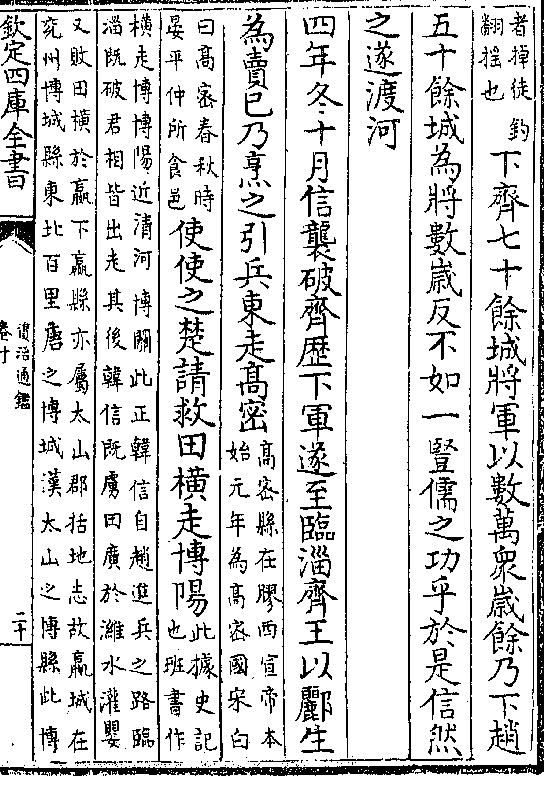 者掉徒鈞
翻揺也
下齊七十餘城將軍以數萬衆歳餘乃下趙
五十餘城為將數歳反不如一豎儒之功乎於是信然
之遂渡河
四年冬十月信襲破齊歴下軍遂至臨淄齊王以酈生
為賣已乃烹之引兵東走髙密
髙密縣在膠西宣帝本
始元年為髙密國宋白
曰髙密春秋時
晏平仲所食邑
使使之楚請救田横走博陽
此據史記
也班書作
横走博博陽近清河博關此正韓信自趙進兵之路臨
淄既破君相皆出走其後韓信既虜田廣於濰水灌嬰
又敗田横於嬴下嬴縣亦屬太山郡括地志故嬴城在
兖州博城縣東北百里唐之博城漢太山之博縣此博
欽定四庫全書
資治通鑑
卷十
二十